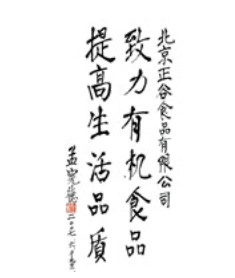 北京正谷食品有限公司
致力有机食品
提高生活品质